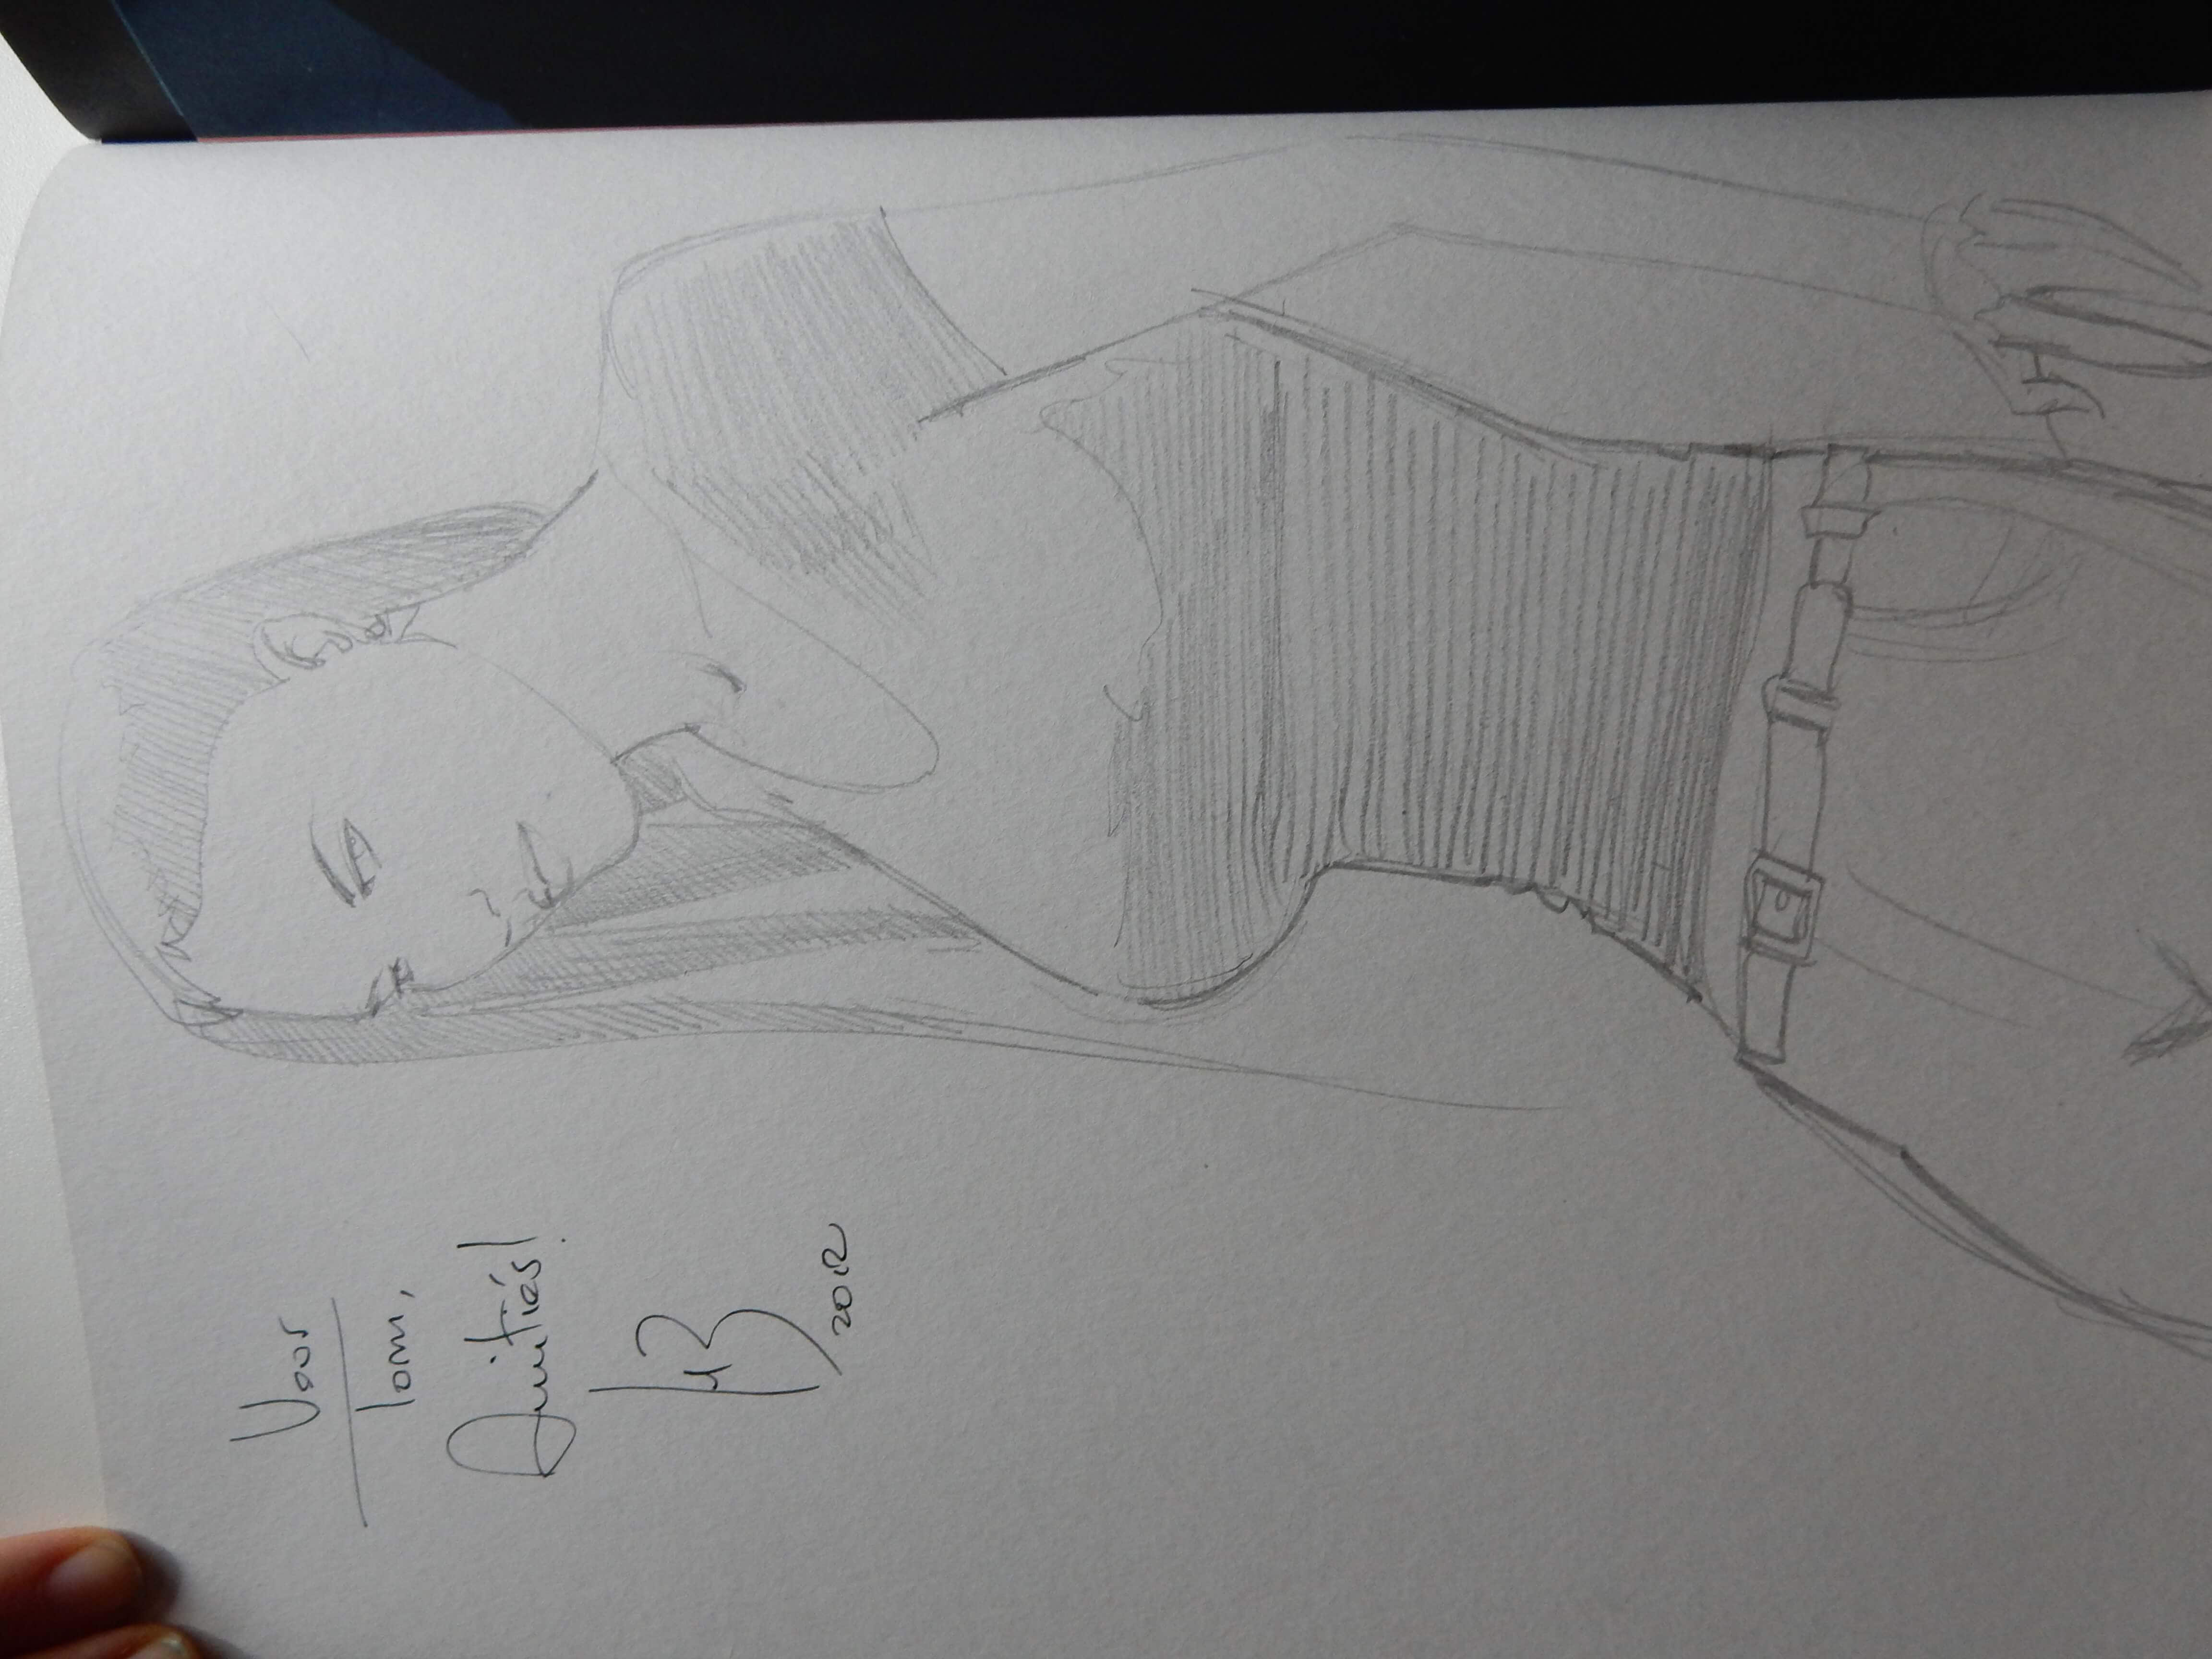 Voor
Tom,
Amitiés!
2012